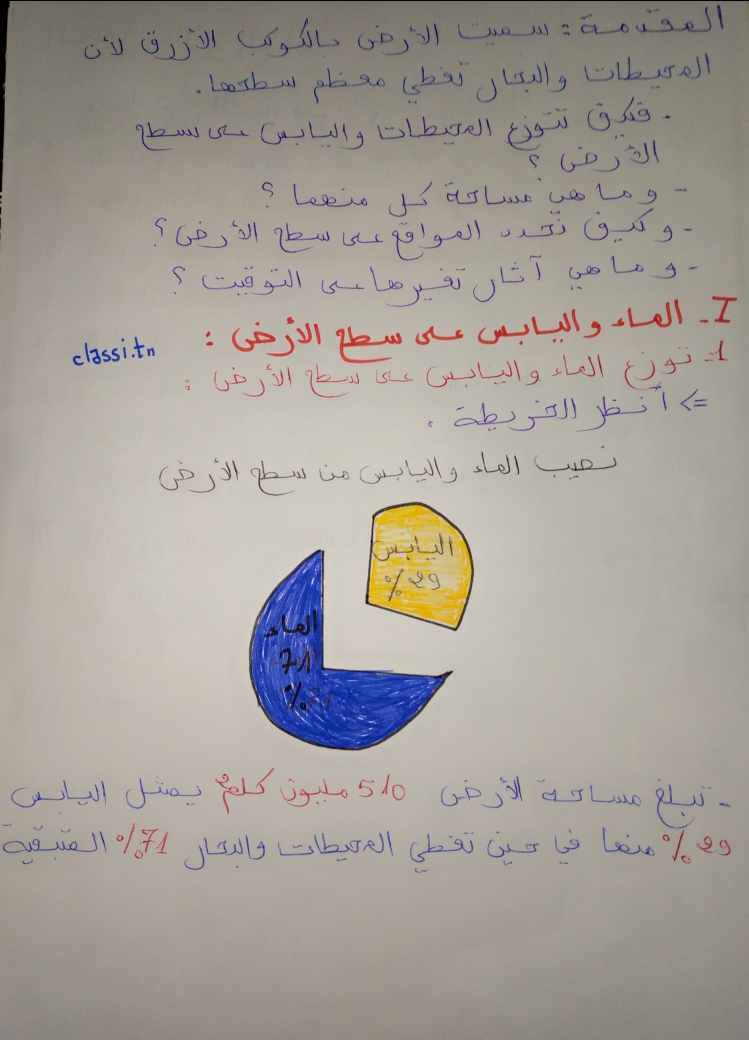 المقدمة: سميت الأرض بالكوكب الأزرق لأن
المحيطات والبحار تغطي معظم سطحها.
- فكيف تتوزع المحيطات واليابس على سطح
الأرض؟
- وما هي مساحة كل منهما؟
- وكيف نحدد المواقع على سطح الأرض؟
- وما هي آثار تغيرها على التوقيت؟
I- الماء واليابس على سطح الأرض:
classi.tn
1- توزع الماء واليابس على سطح الأرض:
=> أنظر الخريطة.
نصيب الماء واليابس من سطح الأرض
اليابس
29%
الماء
71
%
- تبلغ مساحة الأرض 510 مليون كلم² يمثل اليابس
29% منها في حين تغطي المحيطات والبحار 71% المتبقية